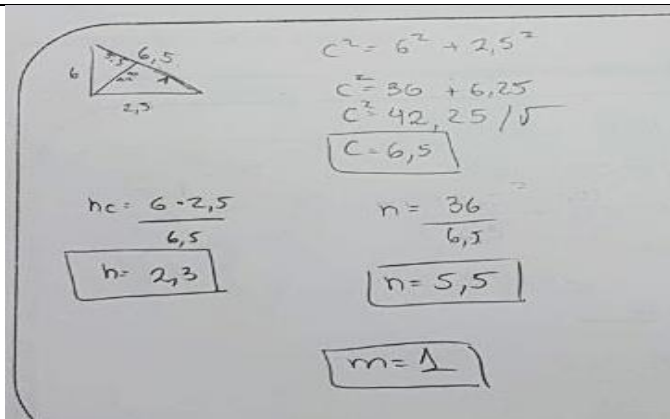 6,5
6
5,5
1
2,5
c² = 6² + 2,5²
c² = 36 + 6,25
c² = 42,25 /√
c = 6,5
hc = 6 · 2,5
6,5
h = 2,3
n = 36
6,5
n = 5,5
m = 1